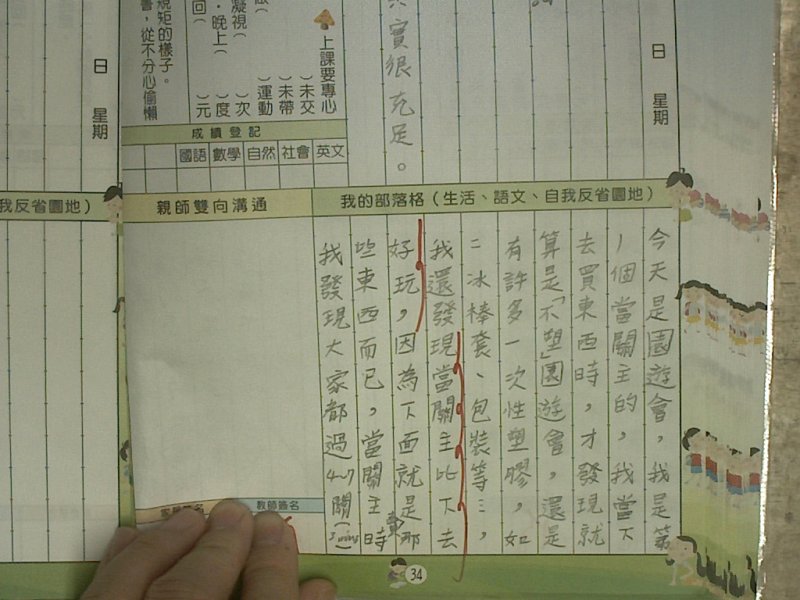 日 星期
實很充足。
上課要專心
( )未交
( )未帶
( )運動
( )次
( )度
( )元
凝視(
・晚上(
回(
規矩的樣子。
書,從不分心偷懶
日 星期
成績登記
國語 數學 自然 社會 英文
我的部落格(生活、語文、自我反省園地)
今天是園遊會,我是第
1個當關主的,我當下
去買東西時,才發現就
算是「不塑」園遊會,還是
有許多一次性塑膠,如
:冰棒套、包裝等…,
我還發現當關主比下去
好玩,因為下面就是那
些東西而已,當關主時
我發現大家都過4~7關(
親師雙向溝通
教師簽名
我反省園地)
34